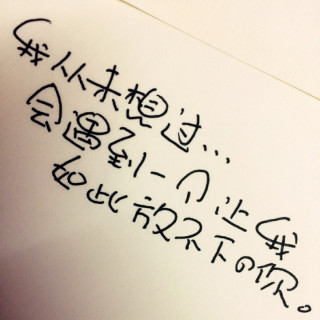 我从未想过...
会遇到一个让我
如此放不下の你。